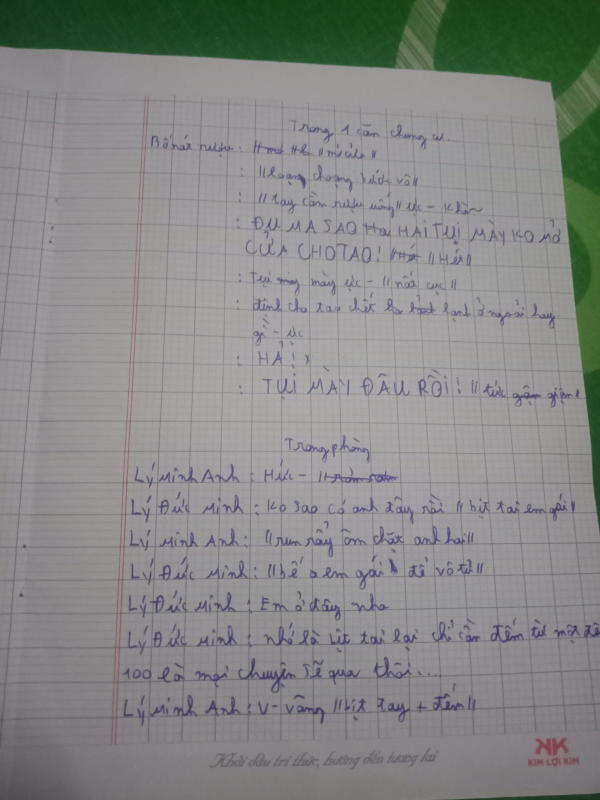 Trong 1 căn chung cư.
Bố nát rượu: // mở cửa //
: // loạng choạng bước vô //
: // tay cầm rượu uống // ực - Khà~
: ĐỤ MÁ SAO HAI TỤI MÀY KO MỞ
CỬA CHO TAO! // Hét //
: Tụi mày ực - // nất cục //
: định cho tao chết lạnh ở ngoài hay
gì - ực
: HẢ!
: TỤI MÀY ĐÂU RỒI! // tức giận //
Trong phòng
Lý Minh Anh: Hức -
Lý Đức Minh: Ko sao có anh đây rồi // bịt tai em gái //
Lý Minh Anh: // run rẩy ôm chặt anh hai //
Lý Đức Minh: // bế em gái để vô tủ //
Lý Đức Minh: Em ở đây nha
Lý Đức Minh: nhớ là bịt tai lại chỉ cần đếm từ một đế
100 là mọi chuyện sẽ qua thôi....
Lý Minh Anh: V-vâng // bịt tay + đếm //
Khởi đầu tri thức, hướng đến tương lai
KIM LỢI KIM